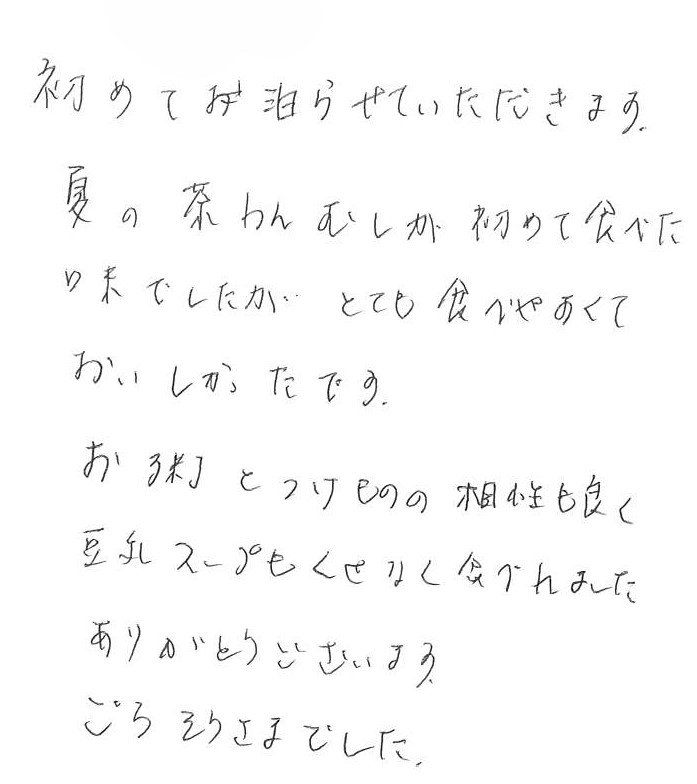 初めてお泊らせていただきます.
夏の茶わんむしが初めて食べた
味でしたが… とても食べやすくて
おいしかったです.
お粥とつけものの相性も良く
豆乳スープもくせなく食べれました
ありがとうございます.
ごちそうさまでした.